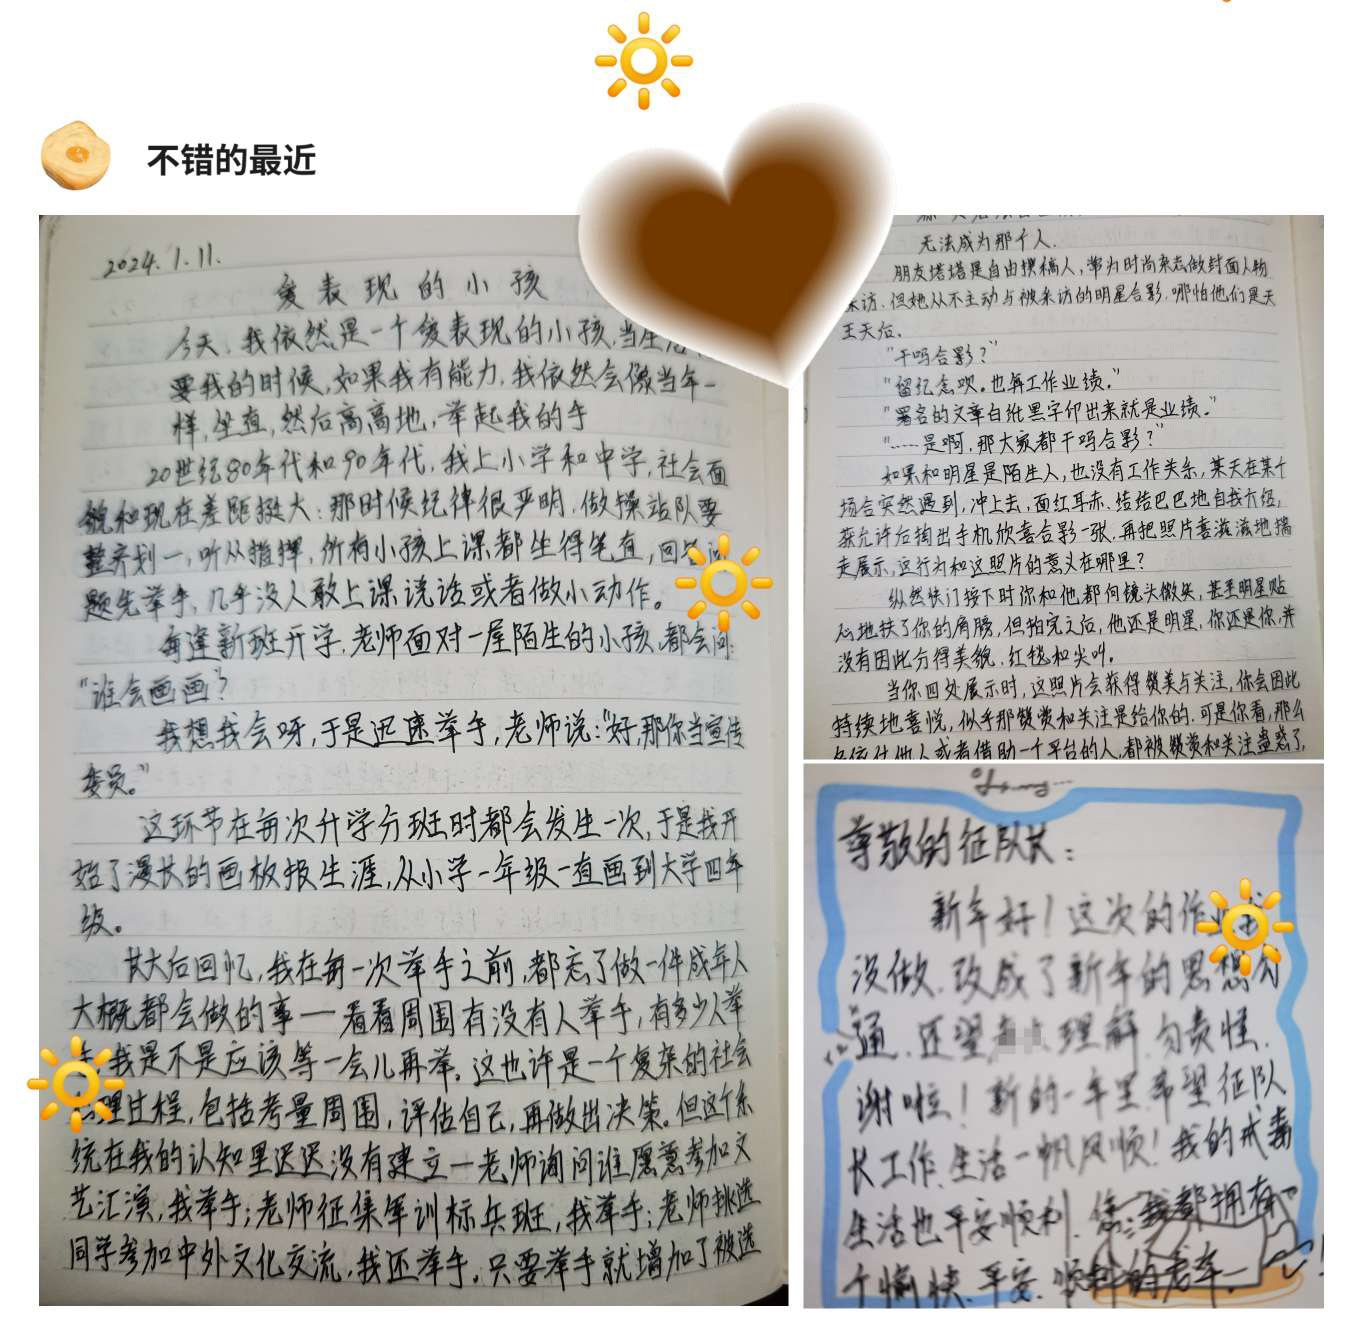 不错的最近
2024.1.11.
爱表现的小孩
今天,我依然是一个爱表现的小孩,当生活
要我的时候,如果我有能力,我依然会像当年一
样,坐直,然后高高地,举起我的手
20世纪80年代和90年代,我上小学和中学,社会面
貌和现在差距挺大:那时候纪律很严明,做操站队要
整齐划一,听从指挥,所有小孩上课都坐得笔直,回答问
题先举手,几乎没人敢上课说话或者做小动作。
每逢新班开学,老师面对一屋陌生的小孩,都会问:
“谁会画画?
我想我会呀,于是迅速举手,老师说:“好,那你当宣传
委员。”
这环节在每次升学分班时都会发生一次,于是我开
始了漫长的画板报生涯,从小学一年级一直画到大学四年
级。
长大后回忆,我在每一次举手之前,都忘了做一件成年人
大概都会做的事——看看周围有没有人举手,有多少人举
手,我是不是应该等一会儿再举。这也许是一个复杂的社会
心理过程,包括考量周围,评估自己,再做出决策。但这个系
统在我的认知里迟迟没有建立—老师询问谁愿意参加文
艺汇演,我举手;老师征集军训标兵班,我举手;老师挑选
同学参加中外文化交流,我还举手。只要举手就增加了被选
无法成为那个人.
朋友塔塔是自由撰稿人,常为时尚杂志做封面人物
采访.但她从不主动与被采访的明星合影,哪怕他们是天
王天后。
“干吗合影?”
“留纪念呗。也算工作业绩。”
“署名的文章白纸黑字印出来就是业绩。”
“……是啊,那大家都干吗合影?”
如果和明星是陌生人,也没有工作关系,某天在某个
场合突然遇到,冲上去,面红耳赤、结结巴巴地自我介绍,
获允许后掏出手机欣喜合影一张,再把照片喜滋滋地揣
走展示,这行为和这照片的意义在哪里?
纵然快门按下时你和他都向镜头微笑,甚至明星贴
心地扶了你的肩膀,但拍完之后,他还是明星,你还是你,并
没有因此分得美貌、红毯和尖叫。
当你四处展示时,这照片会获得赞美与关注,你会因此
持续地喜悦,似乎那赞赏和关注是给你的.可是你看,那么
多依仗他人或者借助一个平台的人,都被赞赏和关注蛊惑了,
尊敬的征队长:
新年好!这次的作业我
没做,改成了新年的思想沟
通,还望 理解,勿责怪.
谢啦!新的一年里,希望征队
长工作、生活一帆风顺!我的戒毒
生活也平安顺利.您、我都拥有
个愉快、平安、顺利的龙年